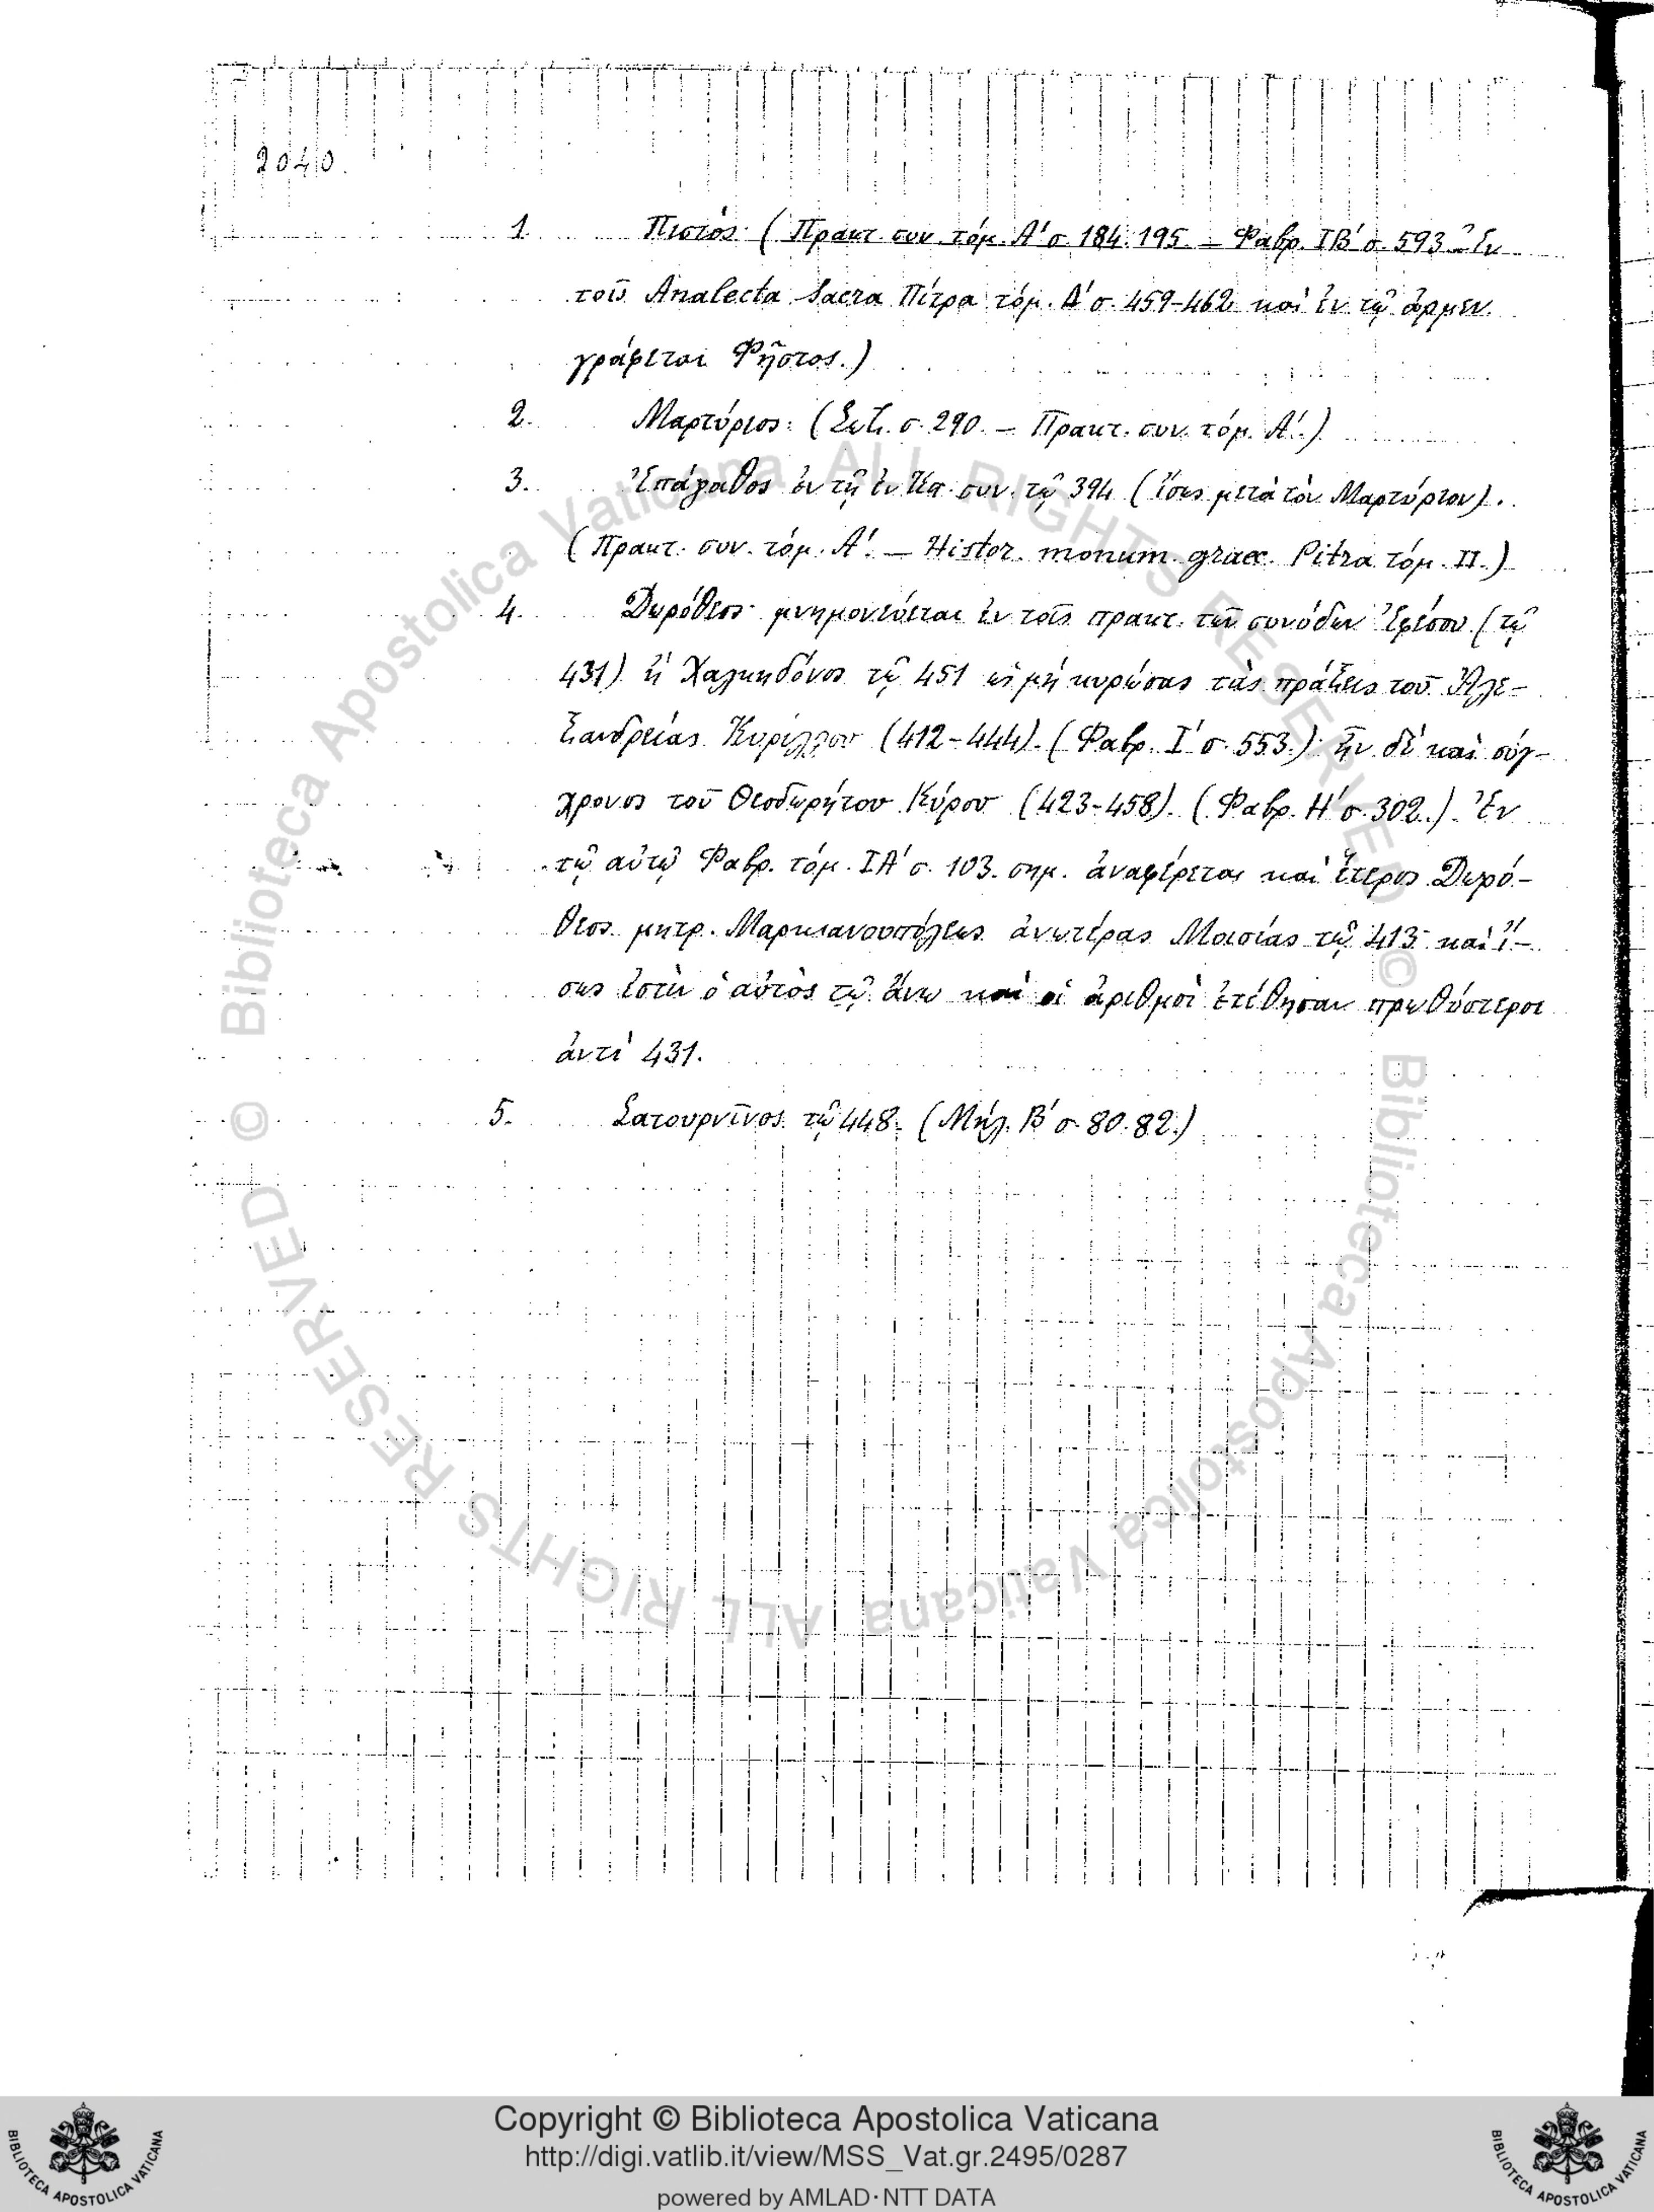 2040.
1. Πιστός: (Πρακτ. συν. τόμ. Α' σ. 184. 195. — Φαβρ. ΙΒ' σ. 593. Ἐν
τοῖς Analecta Sacra Πίτρα τόμ. Δ' σ. 459-462 καὶ ἐν τῷ ἀρμεν.
γράφεται Φῆστος.)
2. Μαρτύριος: (Σωζ. σ. 290. — Πρακτ. συν. τόμ. Α'.)
3. Ἐπάγαθος ἐν τῇ ἐν Κπ. συν. τῷ 394 (ἴσως μετὰ τὸν Μαρτύριον).
(Πρακτ. συν. τόμ. Α'. — Histor. monum. graec. Pitra τόμ. II.)
4. Δωρόθεος· μνημονεύεται ἐν τοῖς πρακτ. τῶν συνόδων Ἐφέσου (τῷ
431) ἢ Χαλκηδόνος τῷ 451 ὡς μὴ κυρώσας τὰς πράξεις τοῦ Ἀλε-
ξανδρείας Κυρίλλου (412-444). (Φαβρ. Ι' σ. 553.) ἦν δὲ καὶ σύγ-
χρονος τοῦ Θεοδωρήτου Κύρου (423-458). (Φαβρ. Η' σ. 302.). Ἐν
τῷ αὐτῷ Φαβρ. τόμ. ΙΑ' σ. 103. σημ. ἀναφέρεται καὶ ἕτερος Δωρό-
θεος μητρ. Μαρκιανουπόλεως ἀνωτέρας Μοισίας τῷ 413 καὶ ἴ-
σως ἐστὶν ὁ αὐτὸς τῷ ἄνω καὶ οἱ ἀριθμοὶ ἐτέθησαν πρωθύστεροι
ἀντὶ 431.
5. Σατουρνῖνος τῷ 448. (Μήλ. Β' σ. 80. 82.)
© Biblioteca Apostolica Vaticana ALL RIGHTS RESERVED © Biblioteca Apostolica Vaticana ALL RIGHTS RESERVED
Copyright © Biblioteca Apostolica Vaticana
http://digi.vatlib.it/view/MSS_Vat.gr.2495/0287
powered by AMLAD·NTT DATA
BIBLIOTECA APOSTOLICA VATICANA
BIBLIOTECA APOSTOLICA VATICANA